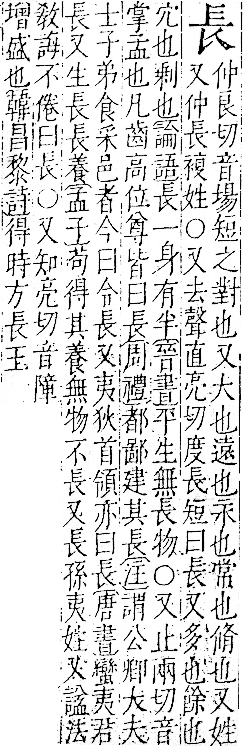 長
仲良切音場短之對也又大也遠也永也常也脩也又姓
又仲長複姓○又去聲直亮切度長短曰長又多也餘也
宂也剩也論語長一身有半晉書平生無長物○又止兩切音
掌孟也凡齒高位尊皆曰長周禮都鄙建其長注謂公卿大夫
士子弟食采邑者今曰令長又夷狄首領亦曰長唐書蠻夷君
長又生長長養孟子苟得其養無物不長又長孫夷姓又諡法
敎誨不倦曰長○又知亮切音障
增盛也韓昌黎詩得時方長王